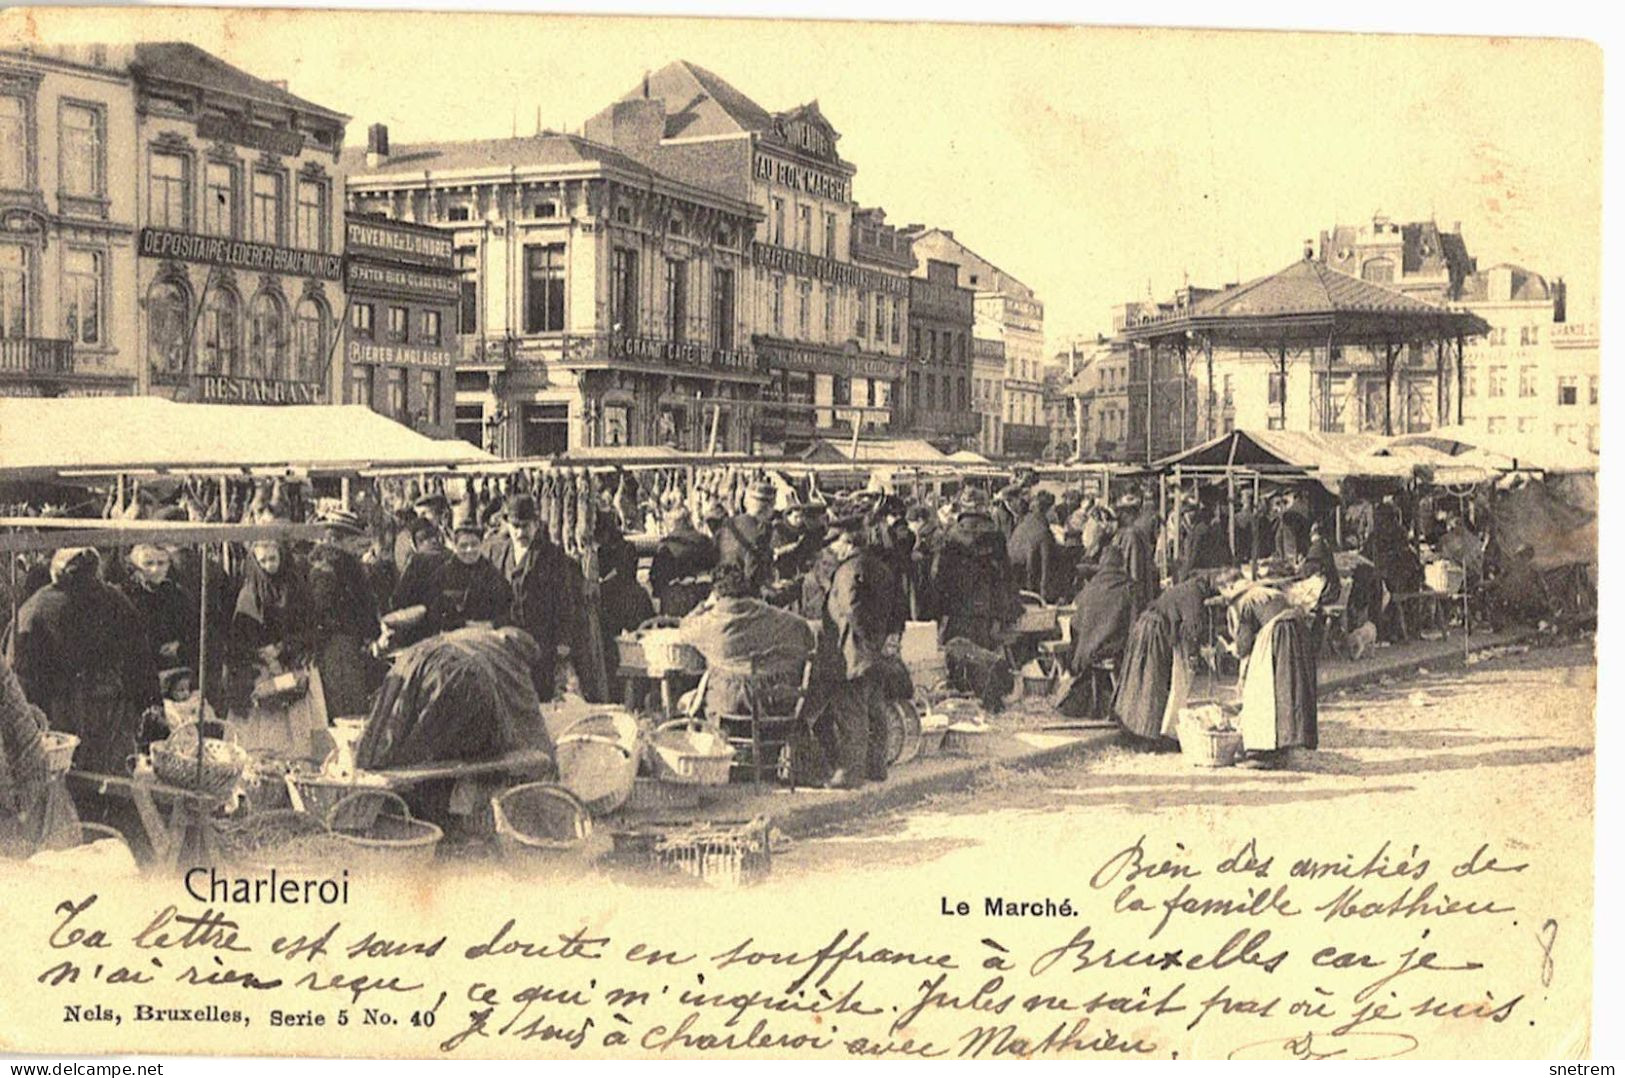 NOUVEAUTÉS
AU BON MARCHÉ
TAVERNE DE LONDRES
DEPOSITAIRE LEDERER BRAU-MUNICH
SPATEN BIER
BIERES ANGLAISES
GRAND CAFÉ DU THEATRE
RESTAURANT
Charleroi
Le Marché.
Bien des amitiés de
la famille Mathieu
Ta lettre est sans doute en souffrance à Bruxelles car je
n'ai rien reçu, ce qui m'inquiète. Jules ne sait pas où je suis.
Je suis à Charleroi avec Mathieu.
8
Nels, Bruxelles, Serie 5 No. 40
delcampe.net
snetrem